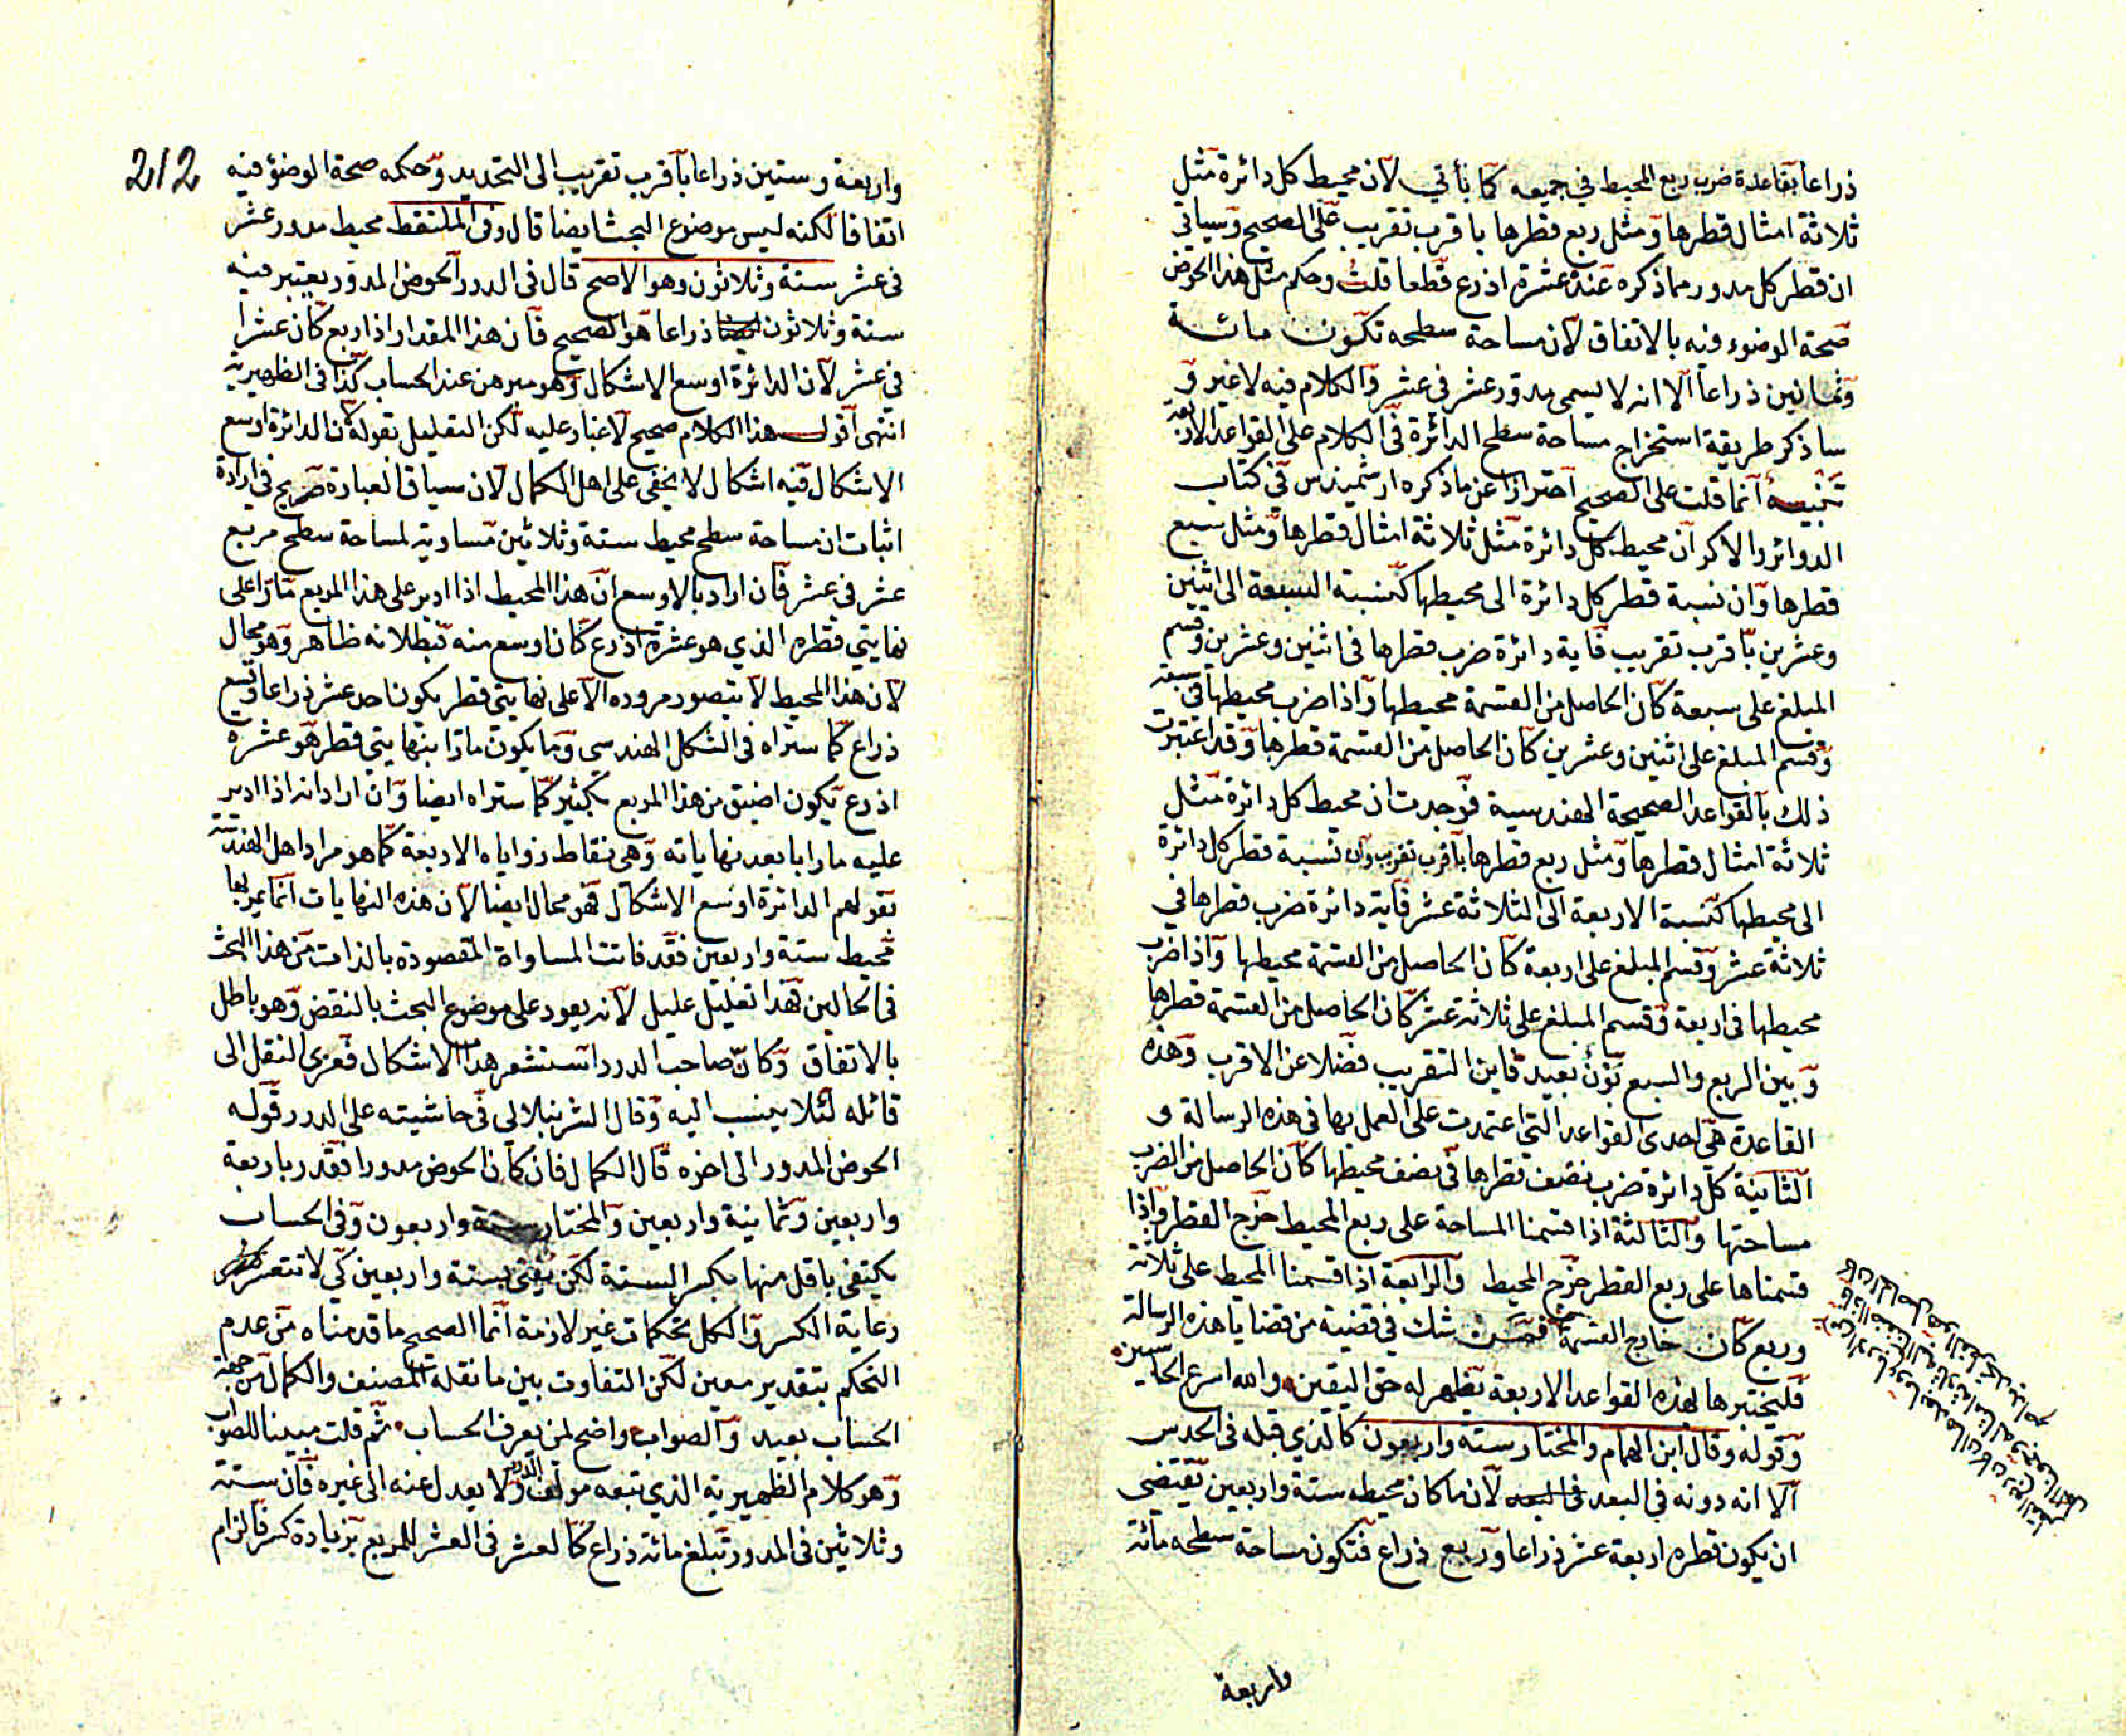 ذراعا بقاعدة ضرب ربع المحيط في جميعه كما يأتي لان محيط كل دائرة مثل
ثلاثة امثال قطرها ومثل ربع قطرها باقرب تقريب على الصحيح وسياتي
ان قطر كل مدور مما ذكره عنده عشرة اذرع قطعا قلت وحكم مثل هذا الحوض
صحة الوضوء فيه بالاتفاق لان مساحة سطحه تكون مائة
وثمانين ذراعا الا انه لا يسمى مدور عشر في عشر والكلام فيه لا غير و
ساذكر طريقة استخراج مساحة سطح الدائرة في الكلام على القواعد الاربعة
تنبيه انما قلت على الصحيح احترازا عن ما ذكره ارشميدس في كتاب
الدوائر والاكر ان محيط كل دائرة مثل ثلاثة امثال قطرها ومثل سبع
قطرها وان نسبة قطر كل دائرة الى محيطها كنسبة السبعة الى اثنين
وعشرين باقرب تقريب فاية دائرة ضرب قطرها في اثنين وعشرين وقسم
المبلغ على سبعة كان الحاصل من القسمة محيطها واذا ضرب محيطها في سبعة
وقسم المبلغ على اثنين وعشرين كان الحاصل من القسمة قطرها وقد اعتبرت
ذلك بالقواعد الصحيحة الهندسية فوجدت ان محيط كل دائرة مثل
ثلاثة امثال قطرها ومثل ربع قطرها باقرب تقريب وان نسبة قطر كل دائرة
الى محيطها كنسبة الاربعة الى الثلاثة عشر فاية دائرة ضرب قطرها في
ثلاثة عشر وقسم المبلغ على اربعة كان الحاصل من القسمة محيطها واذا ضرب
محيطها في اربعة وقسم المبلغ على ثلاثة عشر كان الحاصل من القسمة قطرها
وبين الربع والسبع بون بعيد فاين التقريب فضلا عن الاقرب وهذه
القاعدة هي احدى القواعد التي اعتمدت على العمل بها في هذه الرسالة و
الثانية كل دائرة ضرب نصف قطرها في نصف محيطها كان الحاصل من الضرب
مساحتها والثالثة اذا قسمنا المساحة على ربع المحيط خرج القطر واذا
قسمناها على ربع القطر خرج المحيط والرابعة اذا قسمنا المحيط على ثلاثة
وربع كان خارج القسمة فمن شك في قضية من قضايا هذه الرسالة
فليختبرها بهذه القواعد الاربعة يظهر له حق اليقين والله اسرع الحاسبين
وقوله وقال ابن الهمام والمختار ستة واربعون كالذي قبله في الحدس
الا انه دونه في البعد لان ما كان محيطه ستة واربعين يقتضي
ان يكون قطره اربعة عشر ذراعا وربع ذراع فتكون مساحة سطحه مائة
واربعة
212
واربعة وستين ذراعا باقرب تقريب الى التحديد وحكمه صحة الوضوء فيه
اتفاقا لكنه ليس موضوع البحث ايضا قال وفي الملتقط محيط مدور عشر
في عشر ستة وثلاثون وهو الاصح قال في الدرر الحوض المدور يعتبر فيه
ستة وثلاثون ذراعا هو الصحيح فان هذا المقدار اذا ربع كان عشرا
في عشر لان الدائرة اوسع الاشكال وهو مبرهن عند الحساب كذا في الظهيرية
انتهى اقول هذا الكلام صحيح لا غبار عليه لكن التعليل بقوله لان الدائرة اوسع
الاشكال فيه اشكال لا يخفى على اهل الكمال لان سياق العبارة صريح في ارادة
اثبات ان مساحة سطح محيط ستة وثلاثين مساوية لمساحة سطح مربع
عشر في عشر فان اراد بالاوسع ان هذا المحيط اذا ادير على هذا المربع مارا على
نهايتي قطره الذي هو عشرة اذرع كان اوسع منه فبطلانه ظاهر وهو محال
لان هذا المحيط لا يتصور مروره الا على نهايتي قطر يكون احد عشر ذراعا وتسع
ذراع كما ستراه في الشكل الهندسي وما يكون مارا بنهايتي قطر هو عشرة
اذرع يكون اضيق من هذا المربع بكثير كما ستراه ايضا وان اراد انه اذا ادير
عليه مارا بابعد نهاياته وهي نقاط زواياه الاربعة كما هو مراد اهل الهندسة
بقولهم الدائرة اوسع الاشكال فهو محال ايضا لان هذه النهايات انما يمر بها
محيط ستة واربعين فقد فاتت المساواة المقصودة بالذات من هذا البحث
في الحالين فهذا تعليل عليل لانه يعود على موضوع البحث بالنقض وهو باطل
بالاتفاق وكان صاحب الدرر استشعر هذا الاشكال فعزى النقل الى
قائله لئلا ينسب اليه وقال الشرنبلالي في حاشيته على الدرر قوله
الحوض المدور الى اخره قال الكمال فان كان الحوض مدورا فقدر باربعة
واربعين وثمانية واربعين والمختار ستة واربعون وفي الحساب
يكتفى باقل منها بكسر الستة لكن يفتى بستة واربعين كي لا تتعسر
رعاية الكسر والكل تحكمات غير لازمة انما الصحيح ما قدمناه من عدم
التحكم بتقدير معين لكن التفاوت بين ما نقله المصنف والكمال من جهة
الحساب بعيد والصواب واضح لمن يعرف الحساب ثم قلت مبينا للصواب
وهو كلام الظهيرية الذي تبعه مولف الدرر ولا يعدل عنه الى غيره فان ستة
وثلاثين في المدور تبلغ مائة ذراع كالعشر في العشر للمربع بزيادة كسر فالزام